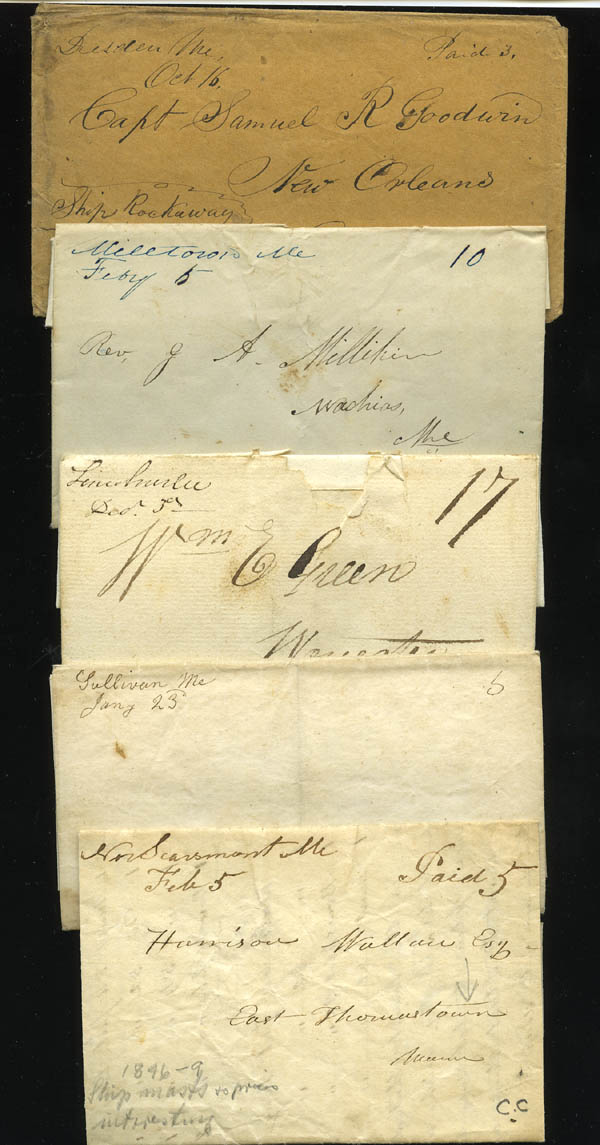 Dresden Me, Paid 3.
Oct 16.
Capt Samuel R Goodwin
New Orleans
Ship Rockaway
Milltown Me 10
Feby 5
Rev, J A. Millikin
Machias,
Me
Lincolnville 17
Decr. 3d
Wm E Green
Worcester
Sullivan Me 5
Jany 23
Nor Searsmont Me Paid 5
Feb 5
Harrison Wallace Esq
East Thomastown
Maine
1846-9
Ship masts &
interesting
C.C